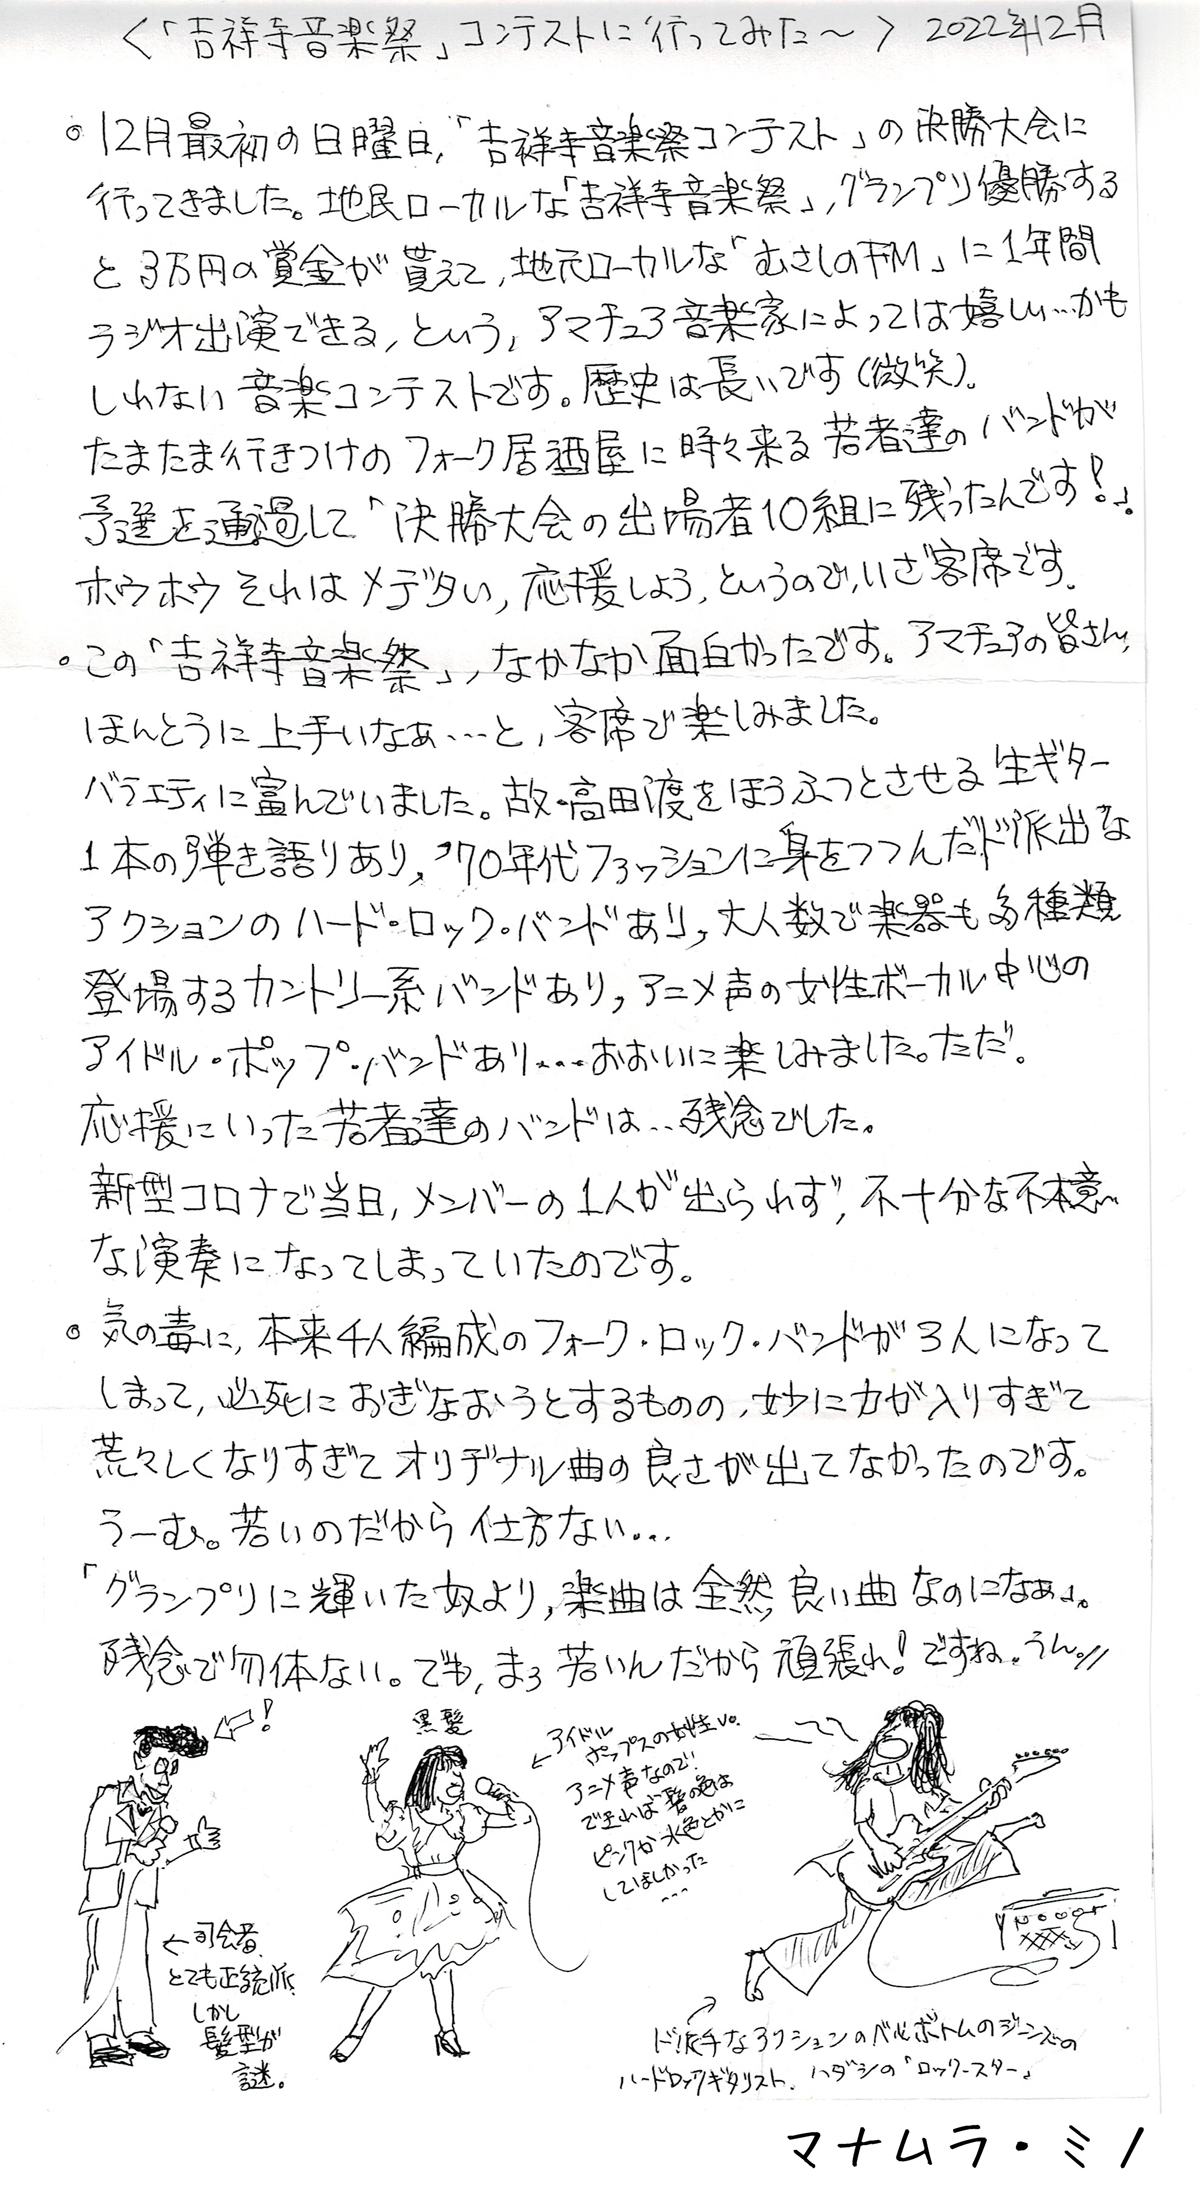 ＜「吉祥寺音楽祭」コンテストに行ってみた〜＞ 2022年12月
。12月最初の日曜日,「吉祥寺音楽祭コンテスト」の決勝大会に
行ってきました。地民ローカルな「吉祥寺音楽祭」,グランプリ優勝する
と3万円の賞金が貰えて,地元ローカルな「むさしのFM」に1年間
ラジオ出演できる,という,アマチュア音楽家によっては嬉しい…かも
しれない音楽コンテストです。歴史は長いです(微笑)。
たまたま行きつけのフォーク居酒屋に時々来る若者達のバンドが
予選を通過して「決勝大会の出場者10組に残ったんです!」。
ホウホウそれはメデタい,応援しよう,というので,いざ客席です。
。この「吉祥寺音楽祭」,なかなか面白かったです。アマチュアの皆さん,
ほんとうに上手いなぁ…と,客席で楽しみました。
バラエティに富んでいました。故・高田渡をほうふつとさせる生ギター
1本の弾き語りあり,'70年代ファッションに身をつつんだド派出な
アクションのハード・ロック・バンドあり,大人数で楽器も多種類
登場するカントリー系バンドあり,アニメ声の女性ボーカル中心の
アイドル・ポップ・バンドあり…おおいに楽しみました。ただ,
応援にいった若者達のバンドは…残念でした。
新型コロナで当日,メンバーの1人が出られず,不十分な不本意
な演奏になってしまっていたのです。
。気の毒に,本来4人編成のフォーク・ロック・バンドが3人になって
しまって,必死におぎなおうとするものの,妙に力が入りすぎて
荒々しくなりすぎてオリヂナル曲の良さが出てなかったのです。
うーむ。若いのだから仕方ない…
「グランプリに輝いた奴より,楽曲は全然良い曲なのになぁ」。
残念で勿体ない。でも,まぅ若いんだから頑張れ!ですね。うん。//
⇐!
黒髪
←アイドル
ポップスの女性vo.
アニメ声なので!
できれば髪の色は
ピンクか水色とかに
してほしかった
…
←司会者,
とても正統派,
しかし
髪型が
謎。
ド派手なアクションのベルボトムのジーンズの
ハードロックギタリスト,ハダシの「ロックスター」
マナムラ・ミノ